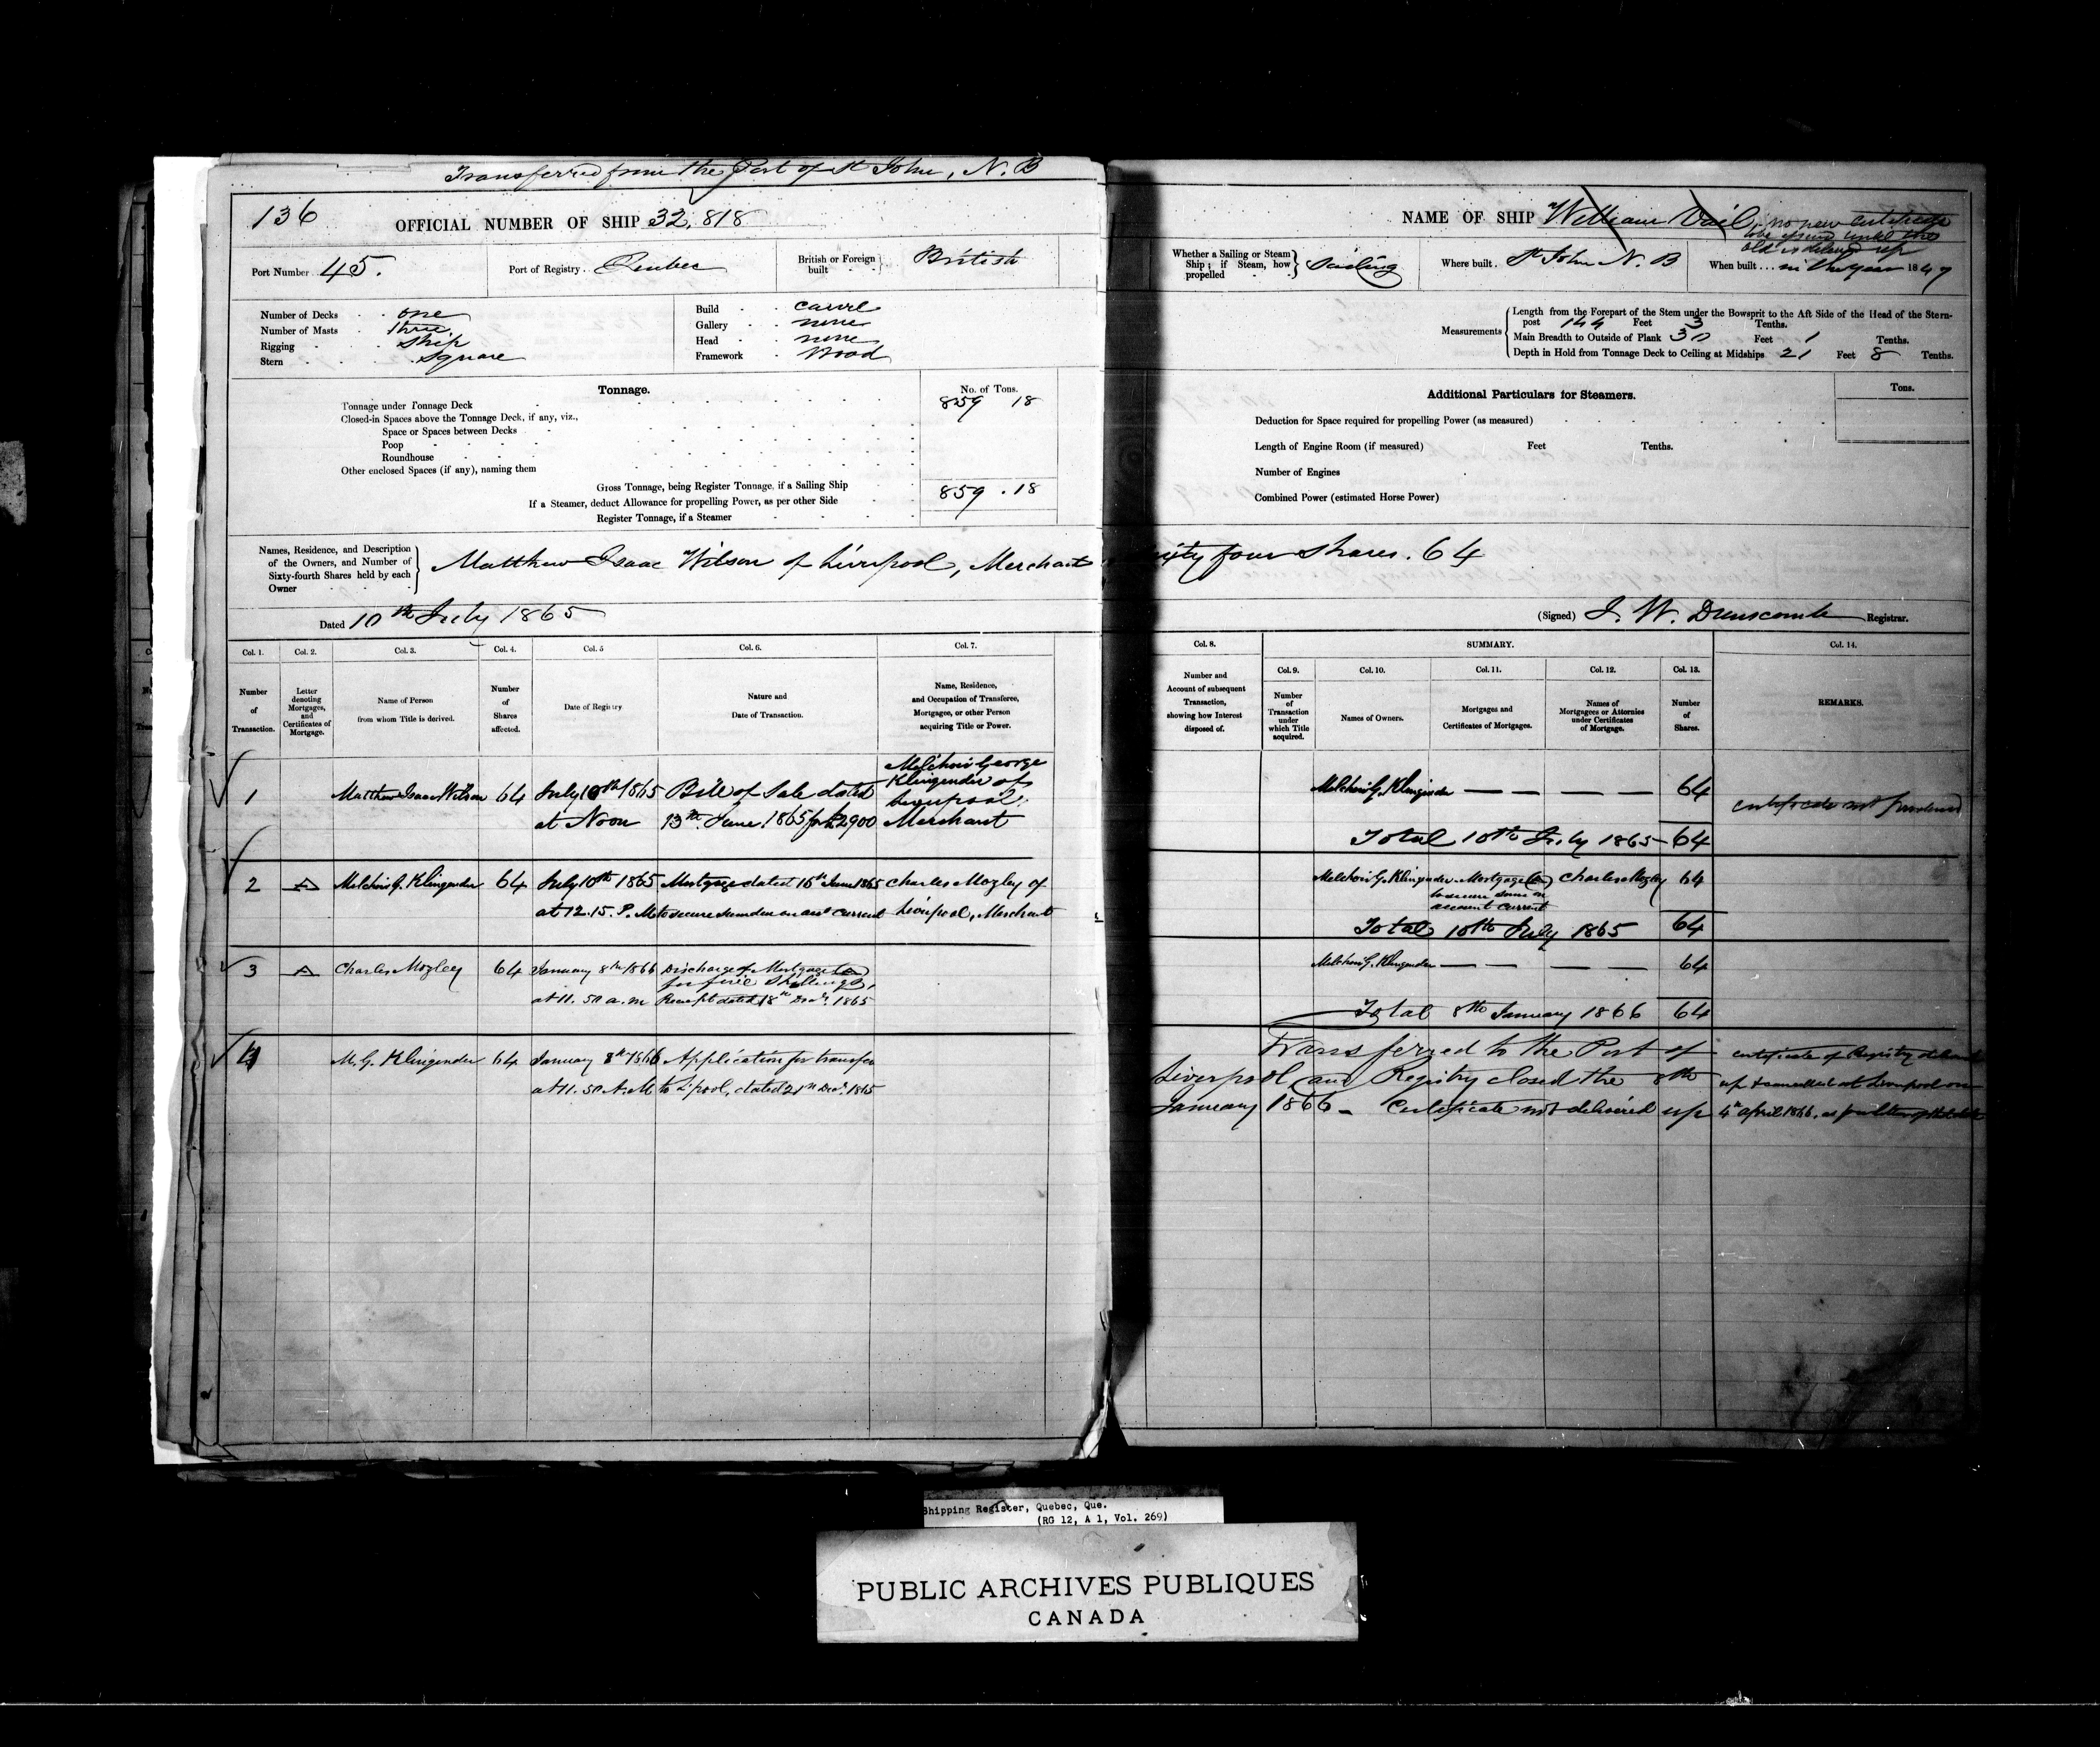 Transferred from the Port of St John, N.B
136
OFFICIAL NUMBER OF SHIP 32,818
Port Number 45.
Port of Registry Quebec
British or Foreign built British
Number of Decks one
Number of Masts three
Rigging ship
Stern square
Build carvel
Gallery none
Head none
Framework Wood
Tonnage.
No. of Tons.
Tonnage under Tonnage Deck 859 18
Closed-in Spaces above the Tonnage Deck, if any, viz.,
Space or Spaces between Decks
Poop
Roundhouse
Other enclosed Spaces (if any), naming them
Gross Tonnage, being Register Tonnage, if a Sailing Ship 859 . 18
If a Steamer, deduct Allowance for propelling Power, as per other Side
Register Tonnage, if a Steamer
Names, Residence, and Description
of the Owners, and Number of
Sixty-fourth Shares held by each
Owner
Matthew Isaac Wilson of Liverpool, Merchant
Dated 10th July 1865
Col. 1. Col. 2. Col. 3. Col. 4. Col. 5 Col. 6. Col. 7.
Number of Transaction.
Letter denoting Mortgages, and Certificates of Mortgage.
Name of Person from whom Title is derived.
Number of Shares affected.
Date of Registry
Nature and Date of Transaction.
Name, Residence, and Occupation of Transferee, Mortgagee, or other Person acquiring Title or Power.
1 Matthew Isaac Wilson 64 July 10th 1865 Bill of Sale dated Melchior George Klingender of Liverpool,
at Noon 13th June 1865 for £2900 Merchant
2 A Melchior G. Klingender 64 July 10th 1865 Mortgage dated 16th June 1865 Charles Mozley of
at 12.15. P.M to secure sum due on acct current Liverpool, Merchant
3 A Charles Mozley 64 January 8th 1866 Discharge of Mortgage (A)
for five Shillings,
at 11. 50 a.m Receipt dated 18th Decr. 1865
4 M. G. Klingender 64 January 8th 1866 Application for transfer
at 11. 50 A.M to L'pool, dated 21st Decr. 1865
NAME OF SHIP William Vail, no new certificate
to be issued until the
old is delivered up
Whether a Sailing or Steam Ship; if Steam, how propelled Sailing
Where built. St John N. B
When built... in the year 1847
Measurements
Length from the Forepart of the Stem under the Bowsprit to the Aft Side of the Head of the Stern-
post 144 Feet 3 Tenths.
Main Breadth to Outside of Plank 30 Feet 1 Tenths.
Depth in Hold from Tonnage Deck to Ceiling at Midships 21 Feet 8 Tenths.
Additional Particulars for Steamers.
Tons.
Deduction for Space required for propelling Power (as measured)
Length of Engine Room (if measured) Feet Tenths.
Number of Engines
Combined Power (estimated Horse Power)
four shares. 64
(Signed) J. W. Dunscomb Registrar.
Col. 8. SUMMARY. Col. 14.
Col. 9. Col. 10. Col. 11. Col. 12. Col. 13.
Number and Account of subsequent Transaction, showing how Interest disposed of.
Number of Transaction under which Title acquired.
Names of Owners.
Mortgages and Certificates of Mortgages.
Names of Mortgagees or Attornies under Certificates of Mortgage.
Number of Shares.
REMARKS.
Melchior G. Klingender — — — — 64 certificate not produced
Total 10th July 1865 64
Melchior G. Klingender Mortgage (A) Charles Mozley 64
to secure sum on
account current
Total 10th July 1865 64
Melchior G. Klingender — — — — 64
Total 8th January 1866 64
Transferred to the Port of
Liverpool, and Registry closed the 8th
January 1866 - Certificate not delivered up
certificate of Registry delivered
up & cancelled at Liverpool on
4th April 1866, as
Shipping Register, Quebec, Que.
(RG 12, A 1, Vol. 269)
PUBLIC ARCHIVES PUBLIQUES
CANADA